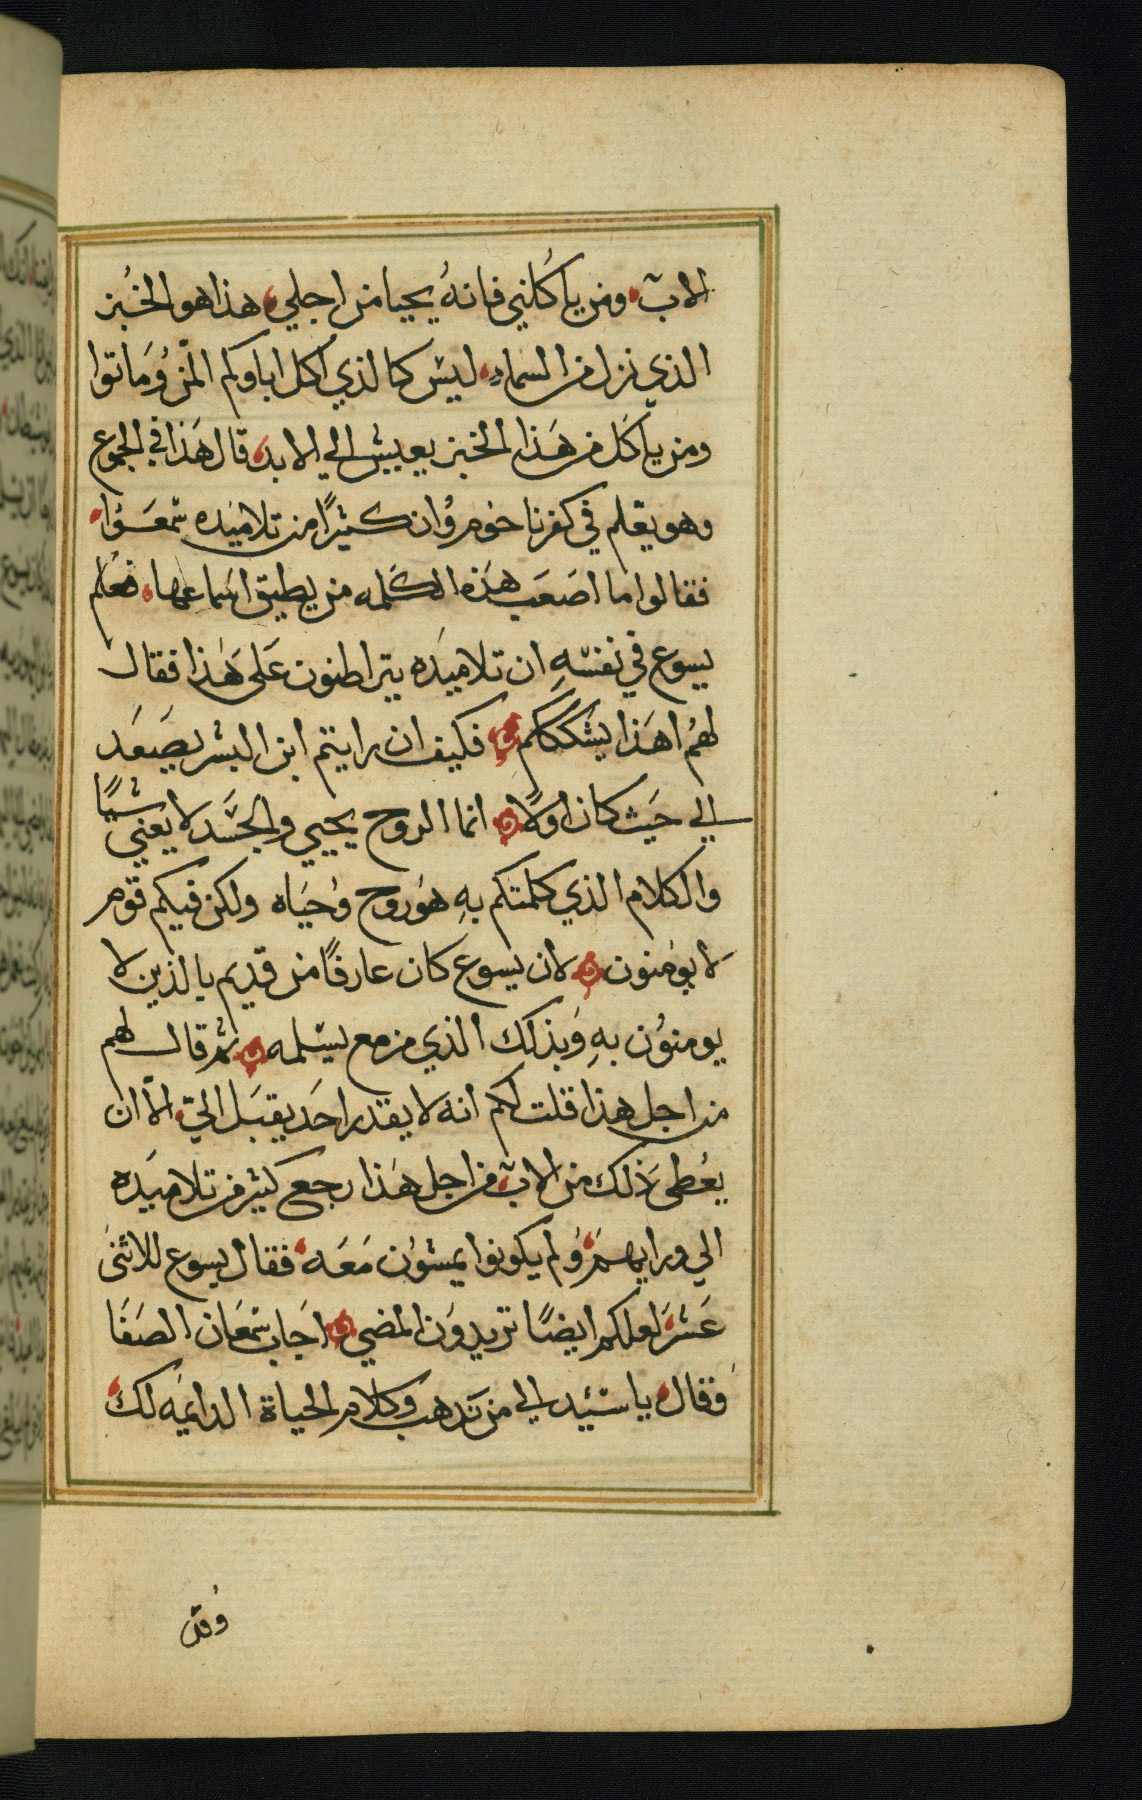 الاب ومن ياكلني فانه يحيا من اجلي هذا هو الخبز
الذي نزل من السماء ليس كالذي اكل اباوكم المن وماتوا
ومن ياكل من هذا الخبز يعيش الي الابد قال هذا في الجموع
وهو يعلم في كفرناحوم وان كثيرًا من تلاميذه سمعوا
فقالوا ما اصعب هذه الكلمه من يطيق استماعها فعلم
يسوع في نفسهِ ان تلاميذه يتراطنون على هذا فقال
لهم اهذا يشكككم فكيف ان رايتم ابن البشر يصعد
الي حيث كان اولاً انما الروح يحيي والجسد لا يغني شيًا
والكلام الذي كلمتكم بهِ هو روح وحياه ولكن فيكم قوم
لا يومنون لان يسوع كان عارفًا من قديم بالذين لا
يومنون بهِ وبذلك الذي مزمع يسلمه ثم قال لهم
من اجل هذا قلت لكم انه لا يقدر احد يقبل الي الّا ان
يعطى ذلك من الاب من اجل هذا رجع كثير من تلاميذه
الي ورايهم ولم يكونوا يمشون معه فقال يسوع للاثنى
عشر لعلكم ايضًا تريدون المضي اجاب سمعان الصفا
وقال يا سيد الي من تذهب وكلام الحياة الدايمه لك
وقد